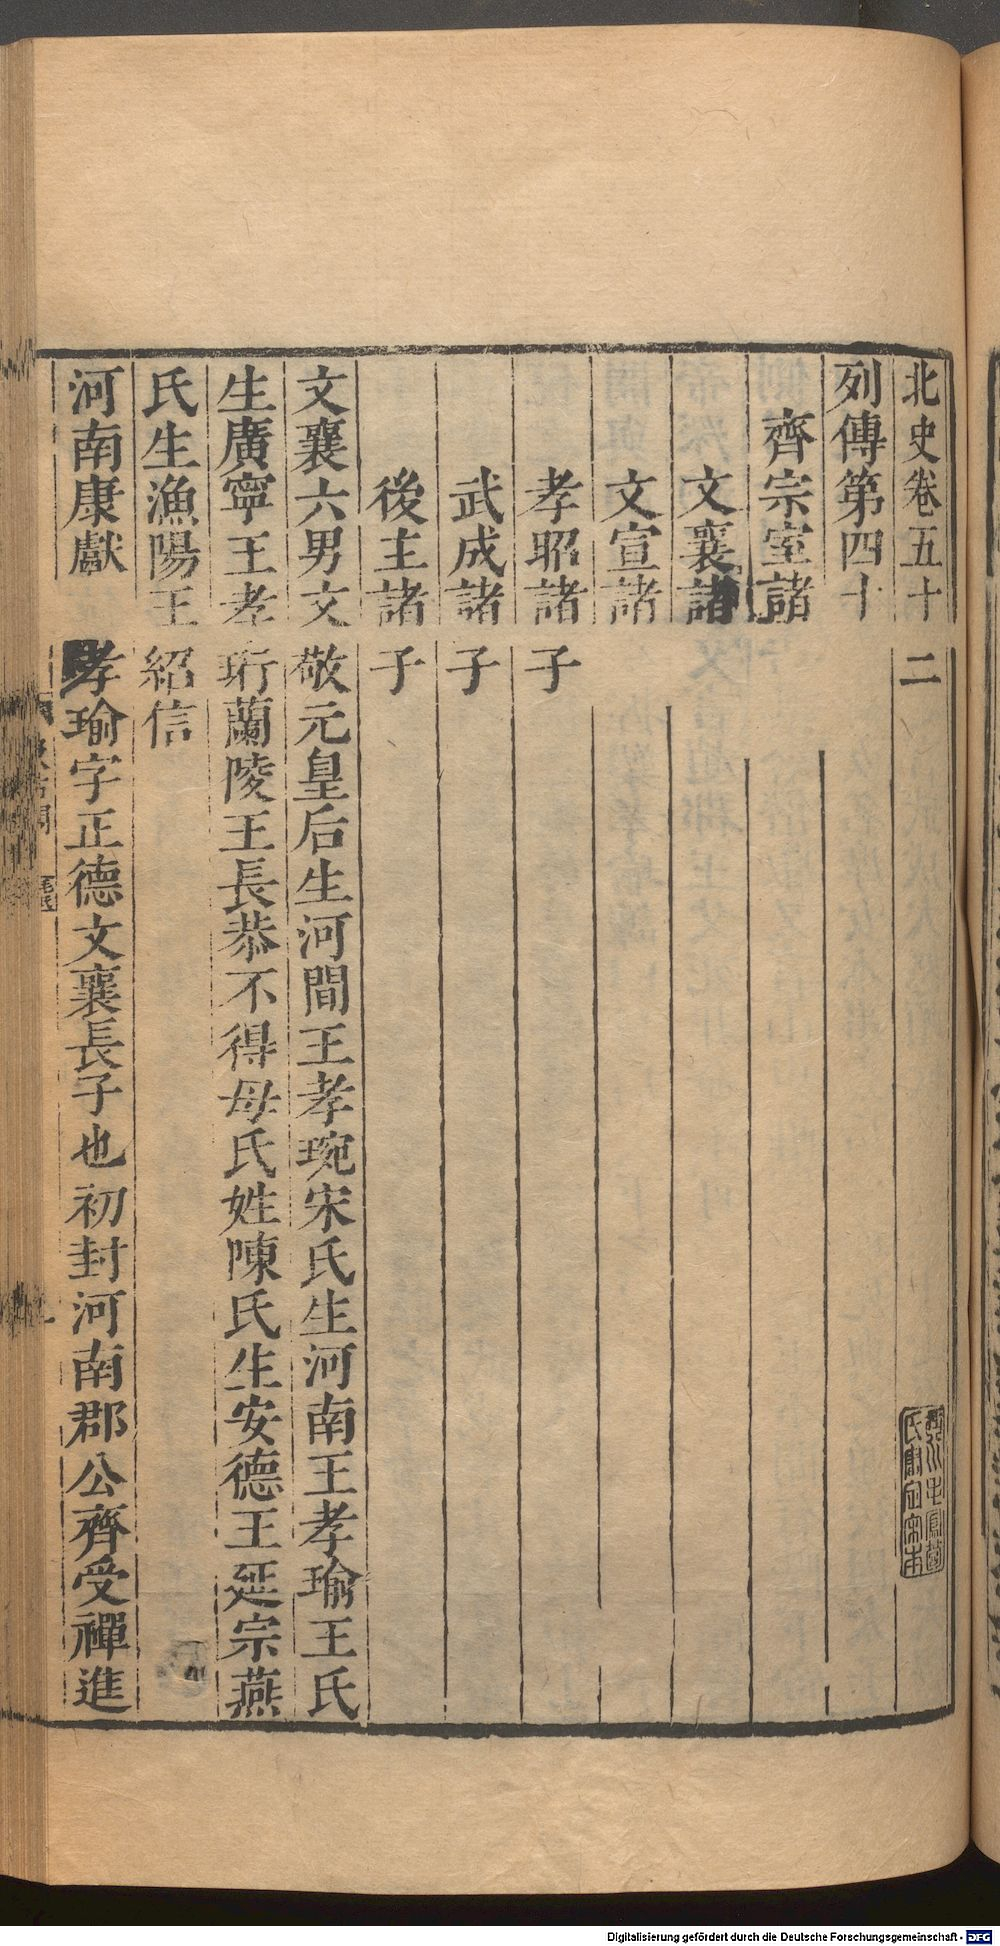 北史卷五十二
列傳第四十
齊宗室諸
文襄諸
文宣諸
孝昭諸子
武成諸子
後主諸子
文襄六男文敬元皇后生河間王孝琬宋氏生河南王孝瑜王氏
生廣寧王孝珩蘭陵王長恭不得母氏姓陳氏生安德王延宗燕
氏生漁陽王紹信
河南康獻
孝瑜字正德文襄長子也初封河南郡公齊受禪進
Digitalisierung gefördert durch die Deutsche Forschungsgemeinschaft - DFG